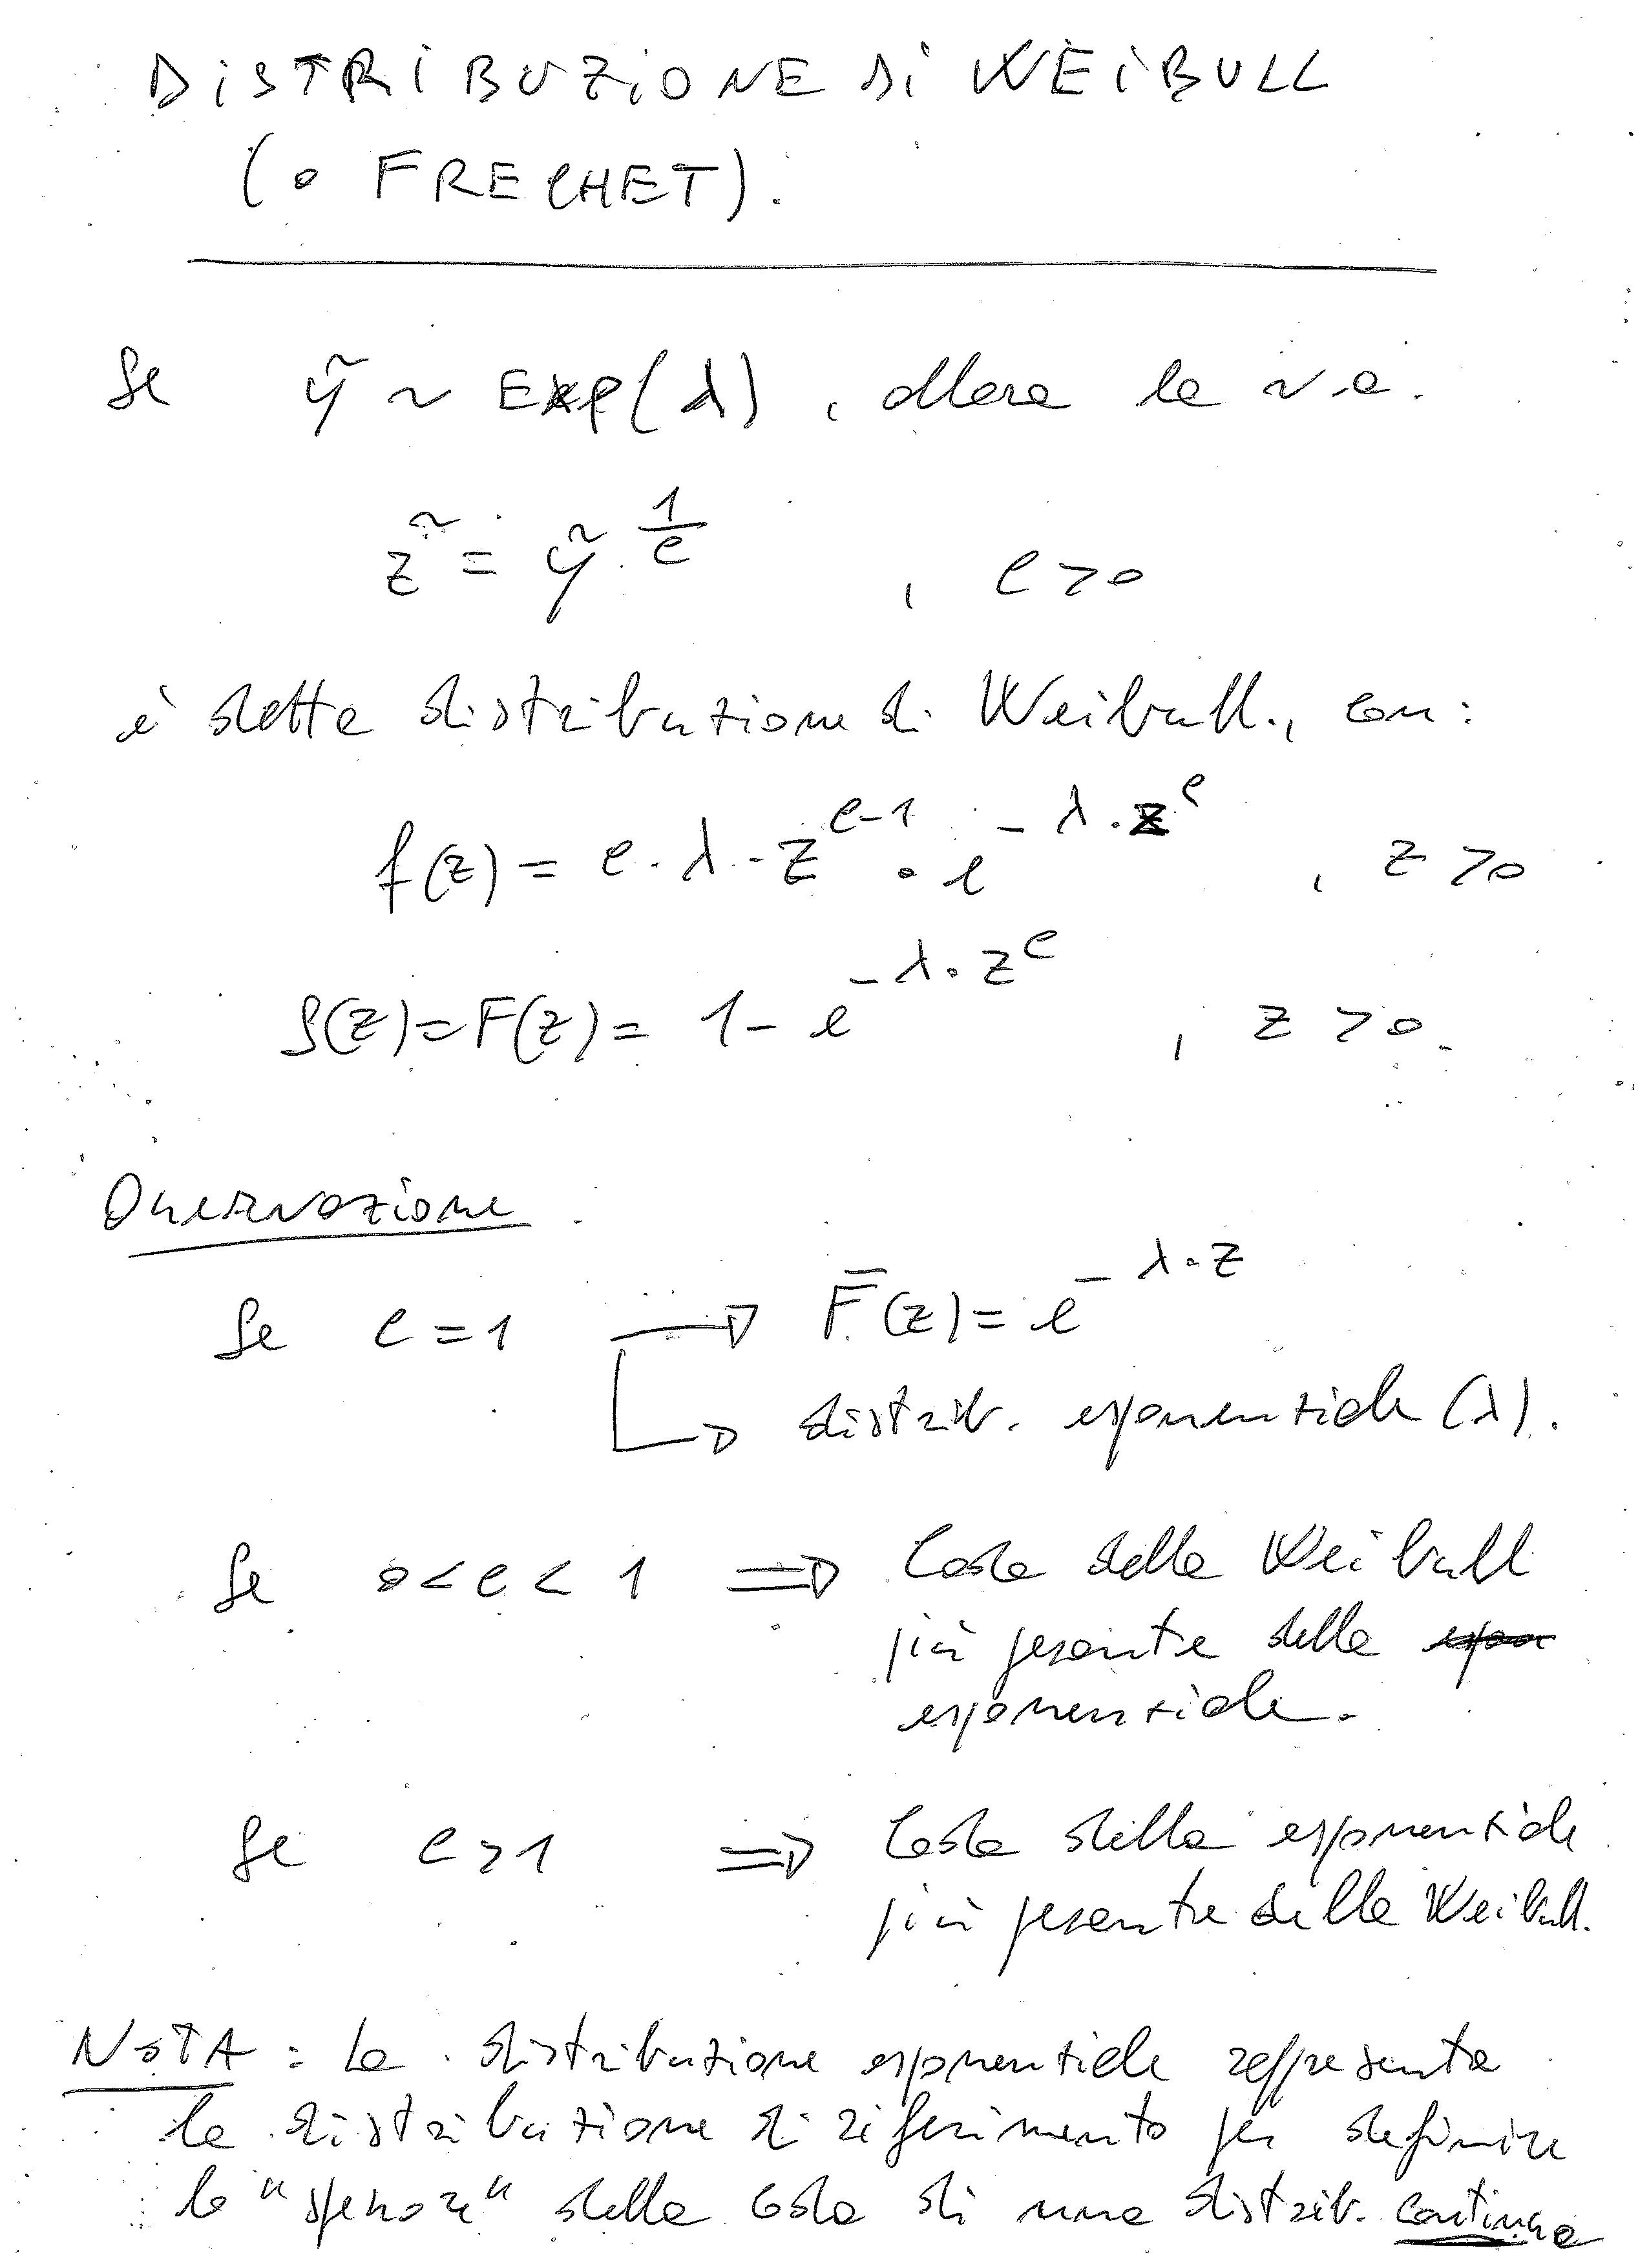 DISTRIBUZIONE DI WEIBULL
(o FRECHET).
Se ỹ ~ Exp(λ), allora la v.a.
z̃ = ỹ^(1/c) , c > 0
è detta distribuzione di Weibull, con:
f(z) = c · λ · z^(c-1) · e^(-λ·z^c) , z > 0
S(z) = F(z) = 1 - e^(-λ·z^c) , z > 0
Osservazione
Se c = 1 → F̄(z) = e^(-λ·z)
↳ distrib. esponenziale (λ).
Se 0 < c < 1 ⇒ Coda della Weibull
più pesante della
esponenziale.
Se c > 1 ⇒ Coda della esponenziale
più pesante della Weibull.
NOTA : La distribuzione esponenziale rappresenta
la distribuzione di riferimento per definire
lo "spessore" della coda di una distrib. continua